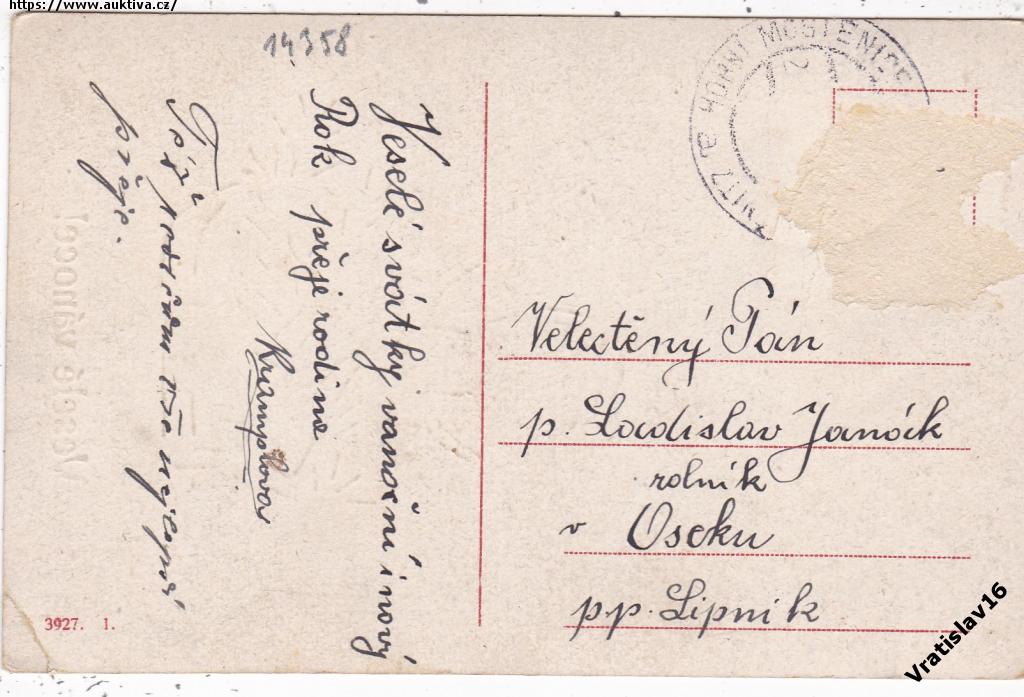 https://www.auktiva.cz/
14358
Veselé svátky vanoční i nový
Rok přeje rodina
Krampлova
Též rodičům vše nejlepší
přeje.
HORNÍ MOŠTĚNICE
Velectěný Pán
p. Ladislav Janáčk
rolník
v Oseku
p.p. Lipník
3927. 1.
Veselé vánoce!
Vratislav16